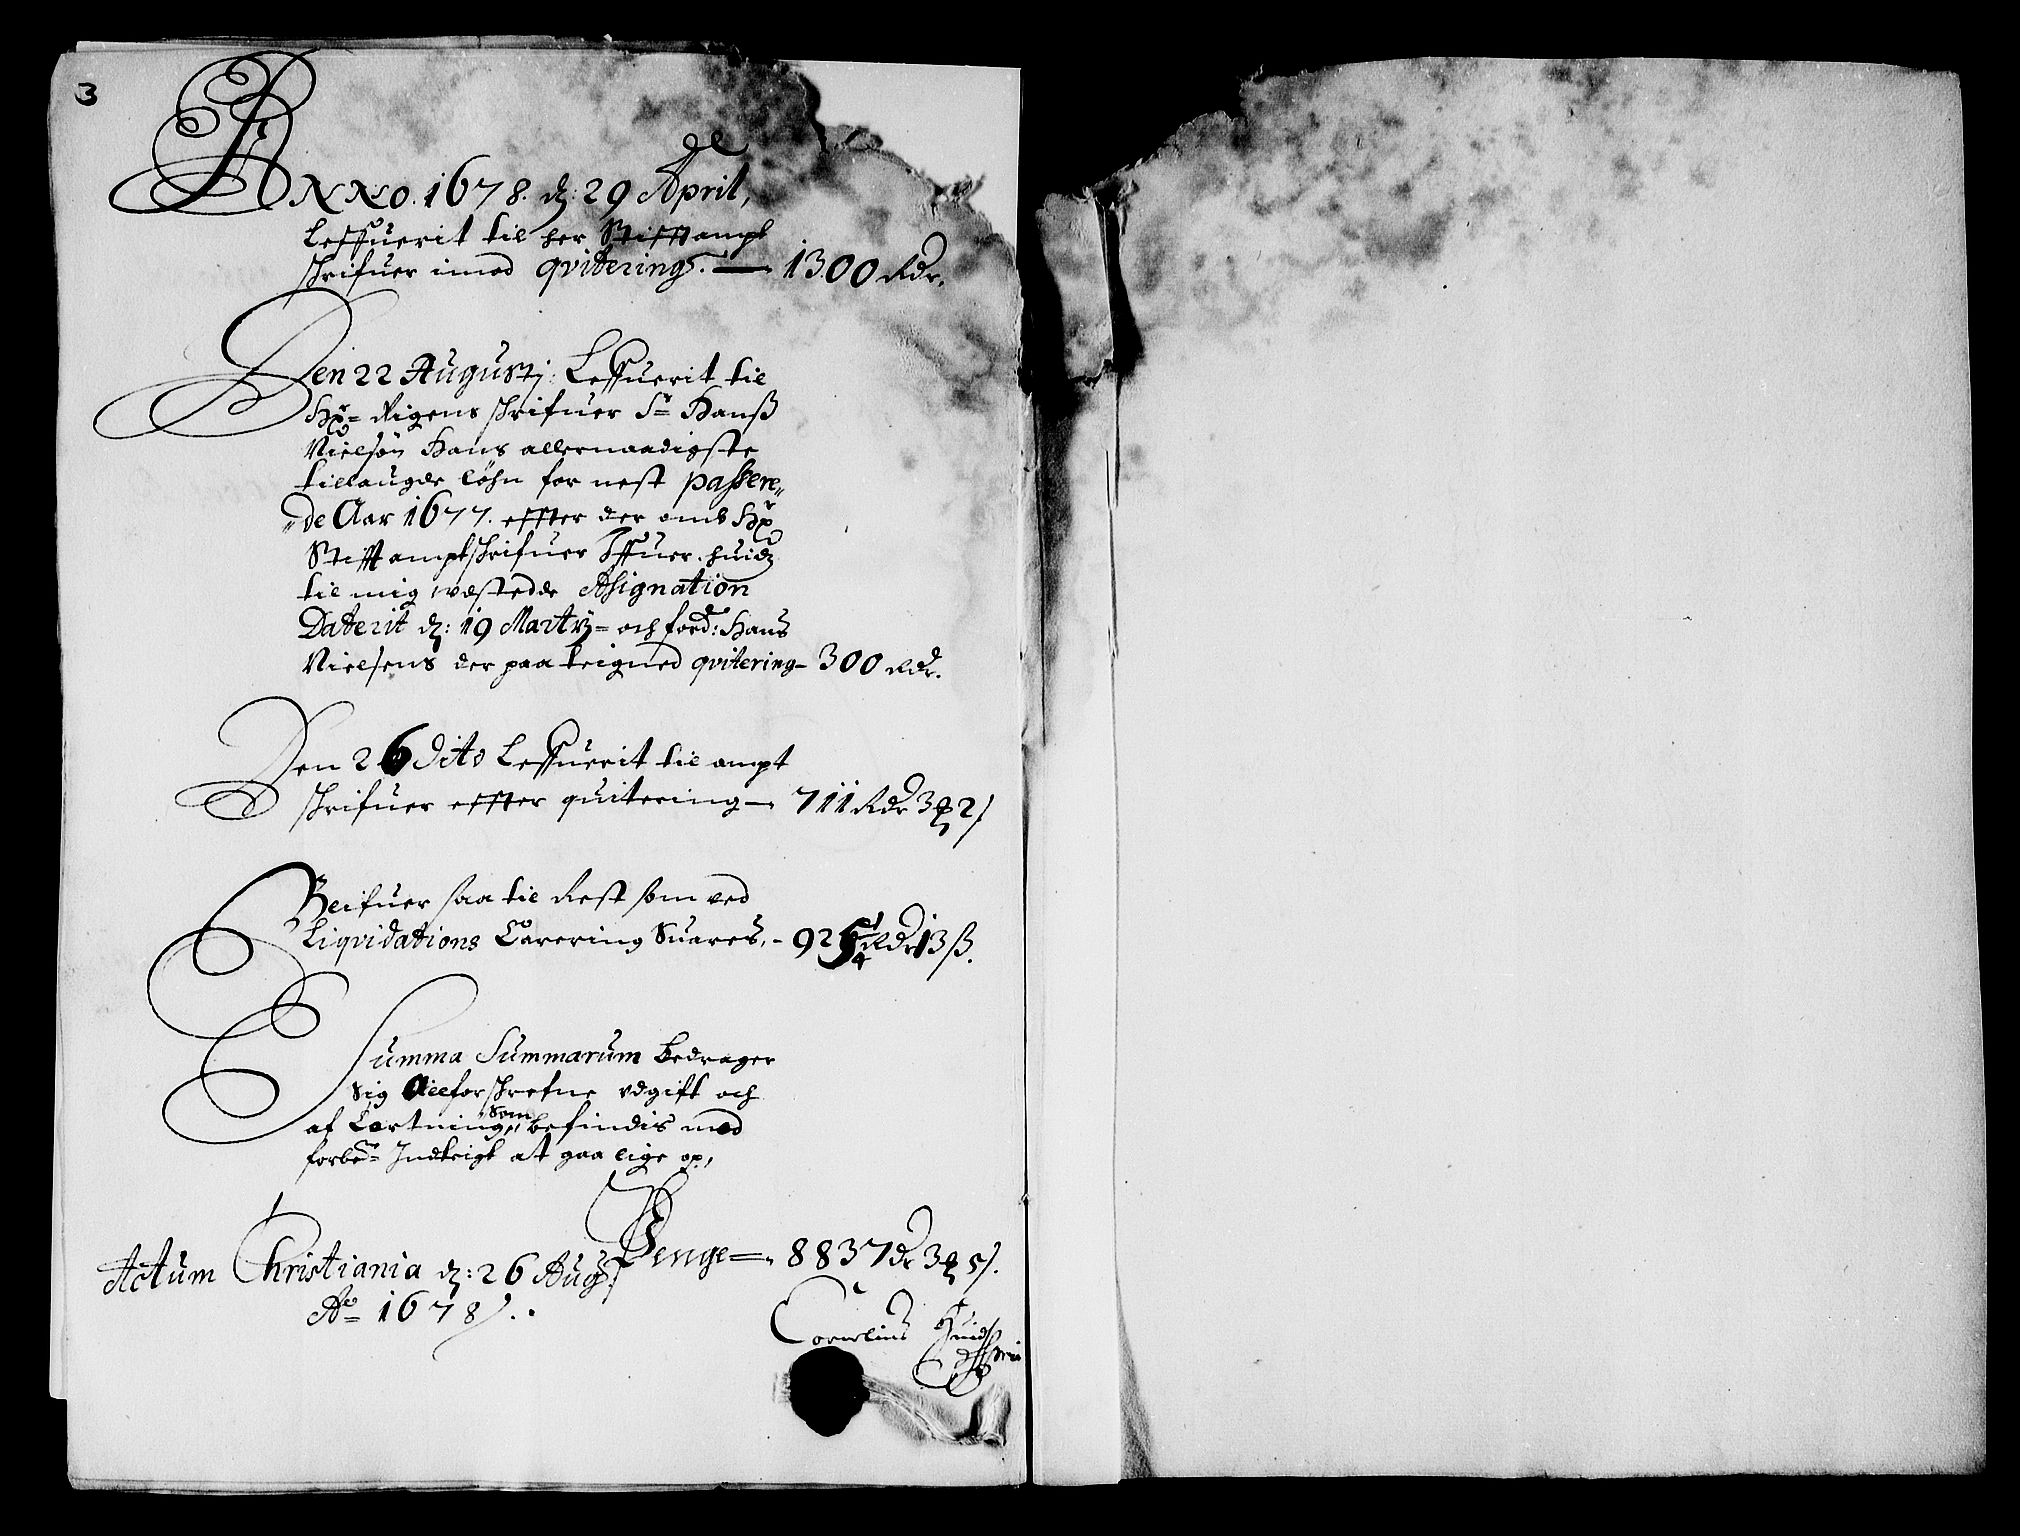 3
ANNO. 1678. dend: 29 April,
Leffuerit til her Stifftampt
schrifuer imod qvitering. — 1300 Rdr.
Den 22 Augusti: Leffuerit til
Hr= Rigens schrifuer Sr= Hanß
Nielsøn Hans allernaadigste
tillaugde løhn for nest passere„
„de Aar 1677. effter der omb Hr
Stifftamptschrifuer Iffuer huidts
til mig udstedde Assignation
Daterit d: 19 Martij= och ford: Hans
Nielsens der paa teigned qvitering — 300 Rdr.
Den 26 dito Leffuerit til ampt
schrifuer effter quitering — 711 Rdr 3 ꝗ 2 s
Blifuer saa til Rest som ved
Liqvidations Lævering Suares, - 925 1/4 Rdr 13 ß.
Summa Summarum bedrager
Sig Alleforschrefne udgift och
af Cortning, som befindis med
forbed= Indteigt at gaa lige op,
Penge — 8837 dr 3 ꝗ 5 s.
Actum Christiania d: 26 Augs
Ao= 1678.
Cornelius